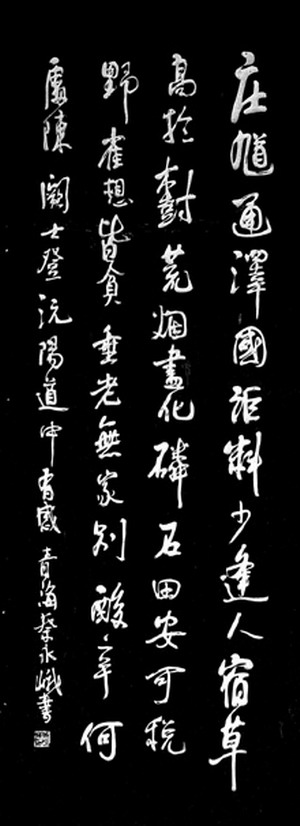 庄馗通澤國詎料少逢人宿草
高於樹荒烟盡化磷石田安可稅
野雀想皆貧垂老無家別酸辛何
處陳 闞士登沅陽道中有感 青海蔡永峨書